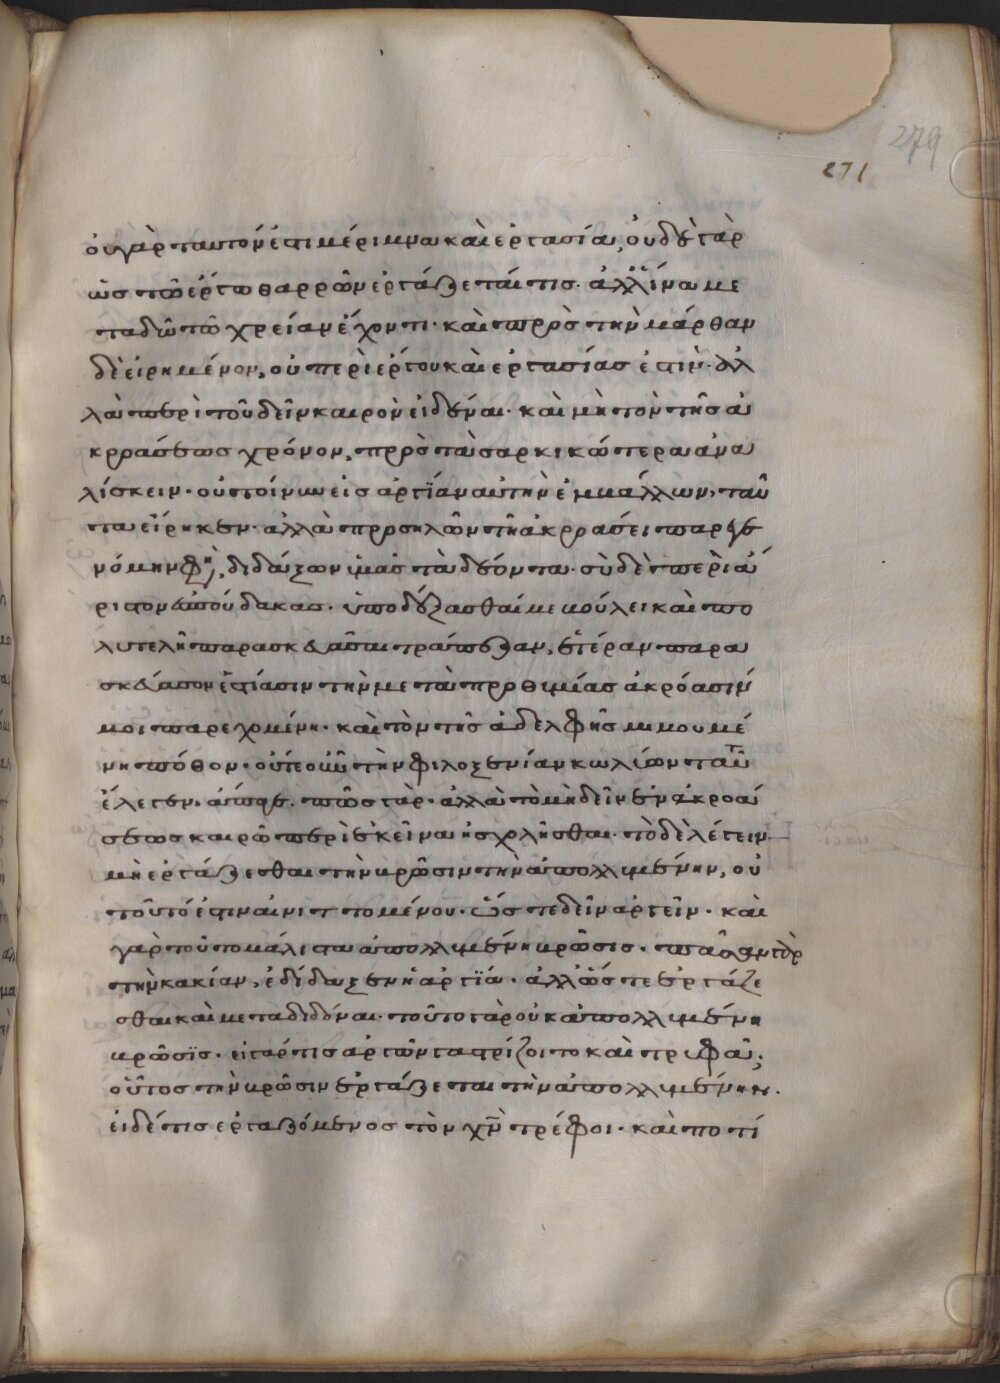 οὐ γὰρ ταυτόν ἐστι μέριμνα καὶ ἐργασία, οὐδὲ γὰρ
ὡς τῶ ἔργω θαρρῶν ἐργάζεταί τις. ἀλλ' ἵνα με
ταδῶ τῶ χρείαν ἔχοντι. καὶ πρὸς τὴν μάρθαν
δὲ εἰρημένον, οὐ περὶ ἔργου καὶ ἐργασίας ἐστὶν. ἀλ
λὰ περὶ τοῦ δεῖν καιρὸν εἰδέναι. καὶ μὴ τὸν τῆς ἀ
κροάσεως χρόνον, πρὸς τὰ σαρκικώτερα ἀνα
λίσκειν. οὐ τοίνυν εἰς ἀργΐαν αὐτὴν ἐμβάλλων, ταῦ
τα εἴρηκεν. ἀλλὰ προσηλῶν τῆ ἀκροάσει παρεγε
νόμην φη, διδάξων ὑμᾶς τὰ δέοντα. σὺ δὲ περὶ ἄ
ριστον ἐσπούδακας. ὑποδέξασθαί με βούλει καὶ πο
λυτελῆ παρασκευάσαι τράπεζαν, ἑτέραν παρα
σκεύασον ἑστίασιν τὴν μετὰ προθυμίας ἀκρόασίν
μοι παρεχομένη. καὶ τὸν τῆς ἀδελφῆς μιμουμέ
νη πόθον. οὔτε οὖν τὴν φιλοξενίαν κωλύων ταῦτ
ἔλεγεν. ἄπαγε. πῶς γὰρ. ἀλλὰ τὸ μὴ δεῖν ἐν ἀκροά
σεως καιρῶ περὶ ἐκεῖνα ἠσχολῆσθαι. τὸ δὲ λέγειν
μὴ ἐργάζεσθαι τὴν βρῶσιν τὴν ἀπολλυμένην, οὐ
τοῦτό ἐστιν αἰνιττομένου. ὥς τε δεῖν ἀργεῖν. καὶ
γὰρ τοῦτο μάλιστα ἀπολλυμένη βρῶσις. πᾶσαν γὰρ
τὴν κακίαν, ἐδίδαξεν ἡ ἀργΐα. ἀλλ' ὥς τε ἐργάζε
σθαι καὶ μεταδιδόναι. τοῦτο γὰρ οὐκ ἀπολλυμένη
βρῶσϊς. εἰ γάρ τις ἀργῶν γαστρίζοιτο καὶ τρυφᾶ,
οὗτος τὴν βρῶσιν ἐργάζεται τὴν ἀπολλυμένην.
εἰ δέ τις ἐργαζόμενος τὸν χν τρέφοι. καὶ ποτί